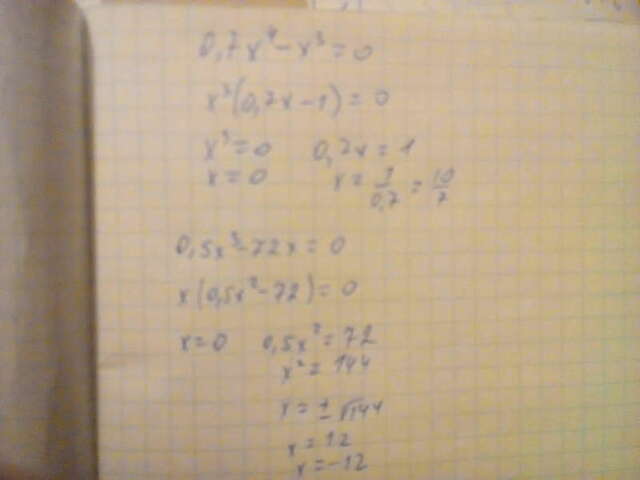 0,7x⁴ - x³ = 0
x³(0,7x - 1) = 0
x³ = 0 0,7x = 1
x = 0 x = 1/0,7 = 10/7
0,5x³ - 72x = 0
x(0,5x² - 72) = 0
x = 0 0,5x² = 72
x² = 144
x = ± √144
x = 12
x = -12